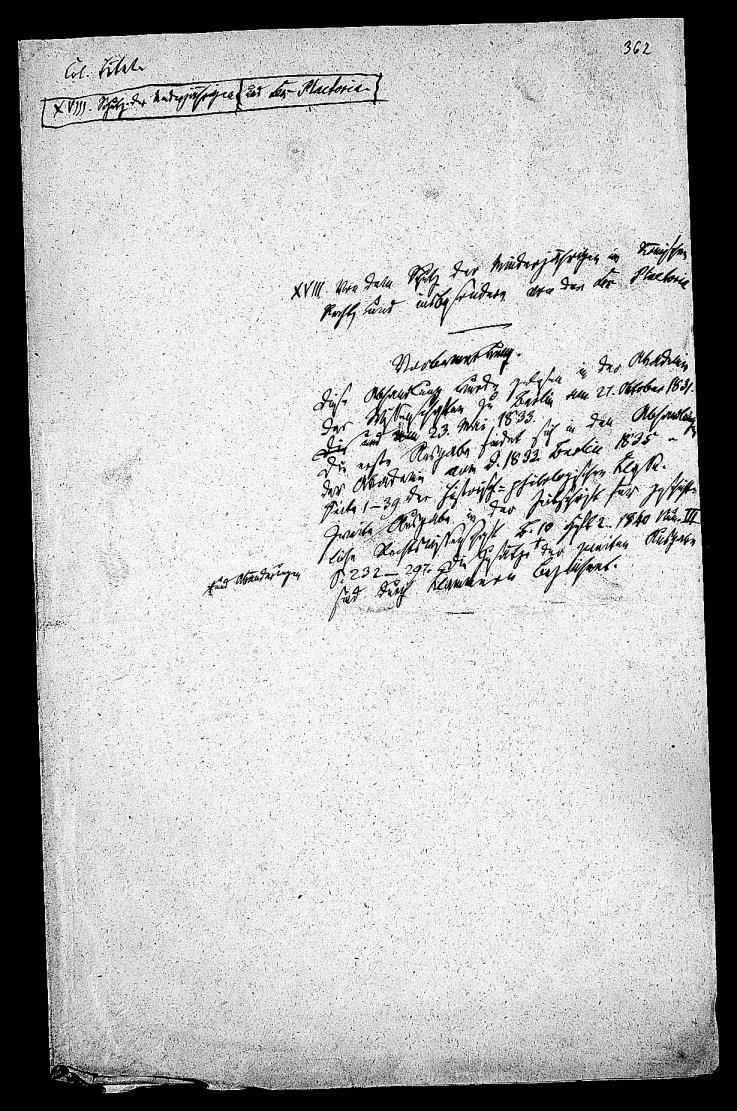 362
Col. Titel.
XVIII. Schutz der Minderjährigen und Lex Plaetoria.
XVIII. Von dem Schutz der Minderjährigen im Römischen
Recht, und insbesondere von der Lex Plaetoria
Vorbemerkung.
Diese Abhandlung wurde gelesen in der Akademie
der Wissenschaften zu Berlin am 27. Oktober 1831.
und am 23. Mai 1833.
Die erste Ausgabe findet sich in den Abhandlungen
der Akademie von J. 1833. Berlin 1835
Seite 1–39 der historisch-philologischen Klasse.
Zweite Ausgabe in der Zeitschrift für geschicht-
liche Rechtswissenschaft B. 10 Heft 2. 1840 Num. III
S. 232–297. Die Zusätze der zweiten Ausgabe
und Abänderungen
sind durch Klammern bezeichnet.